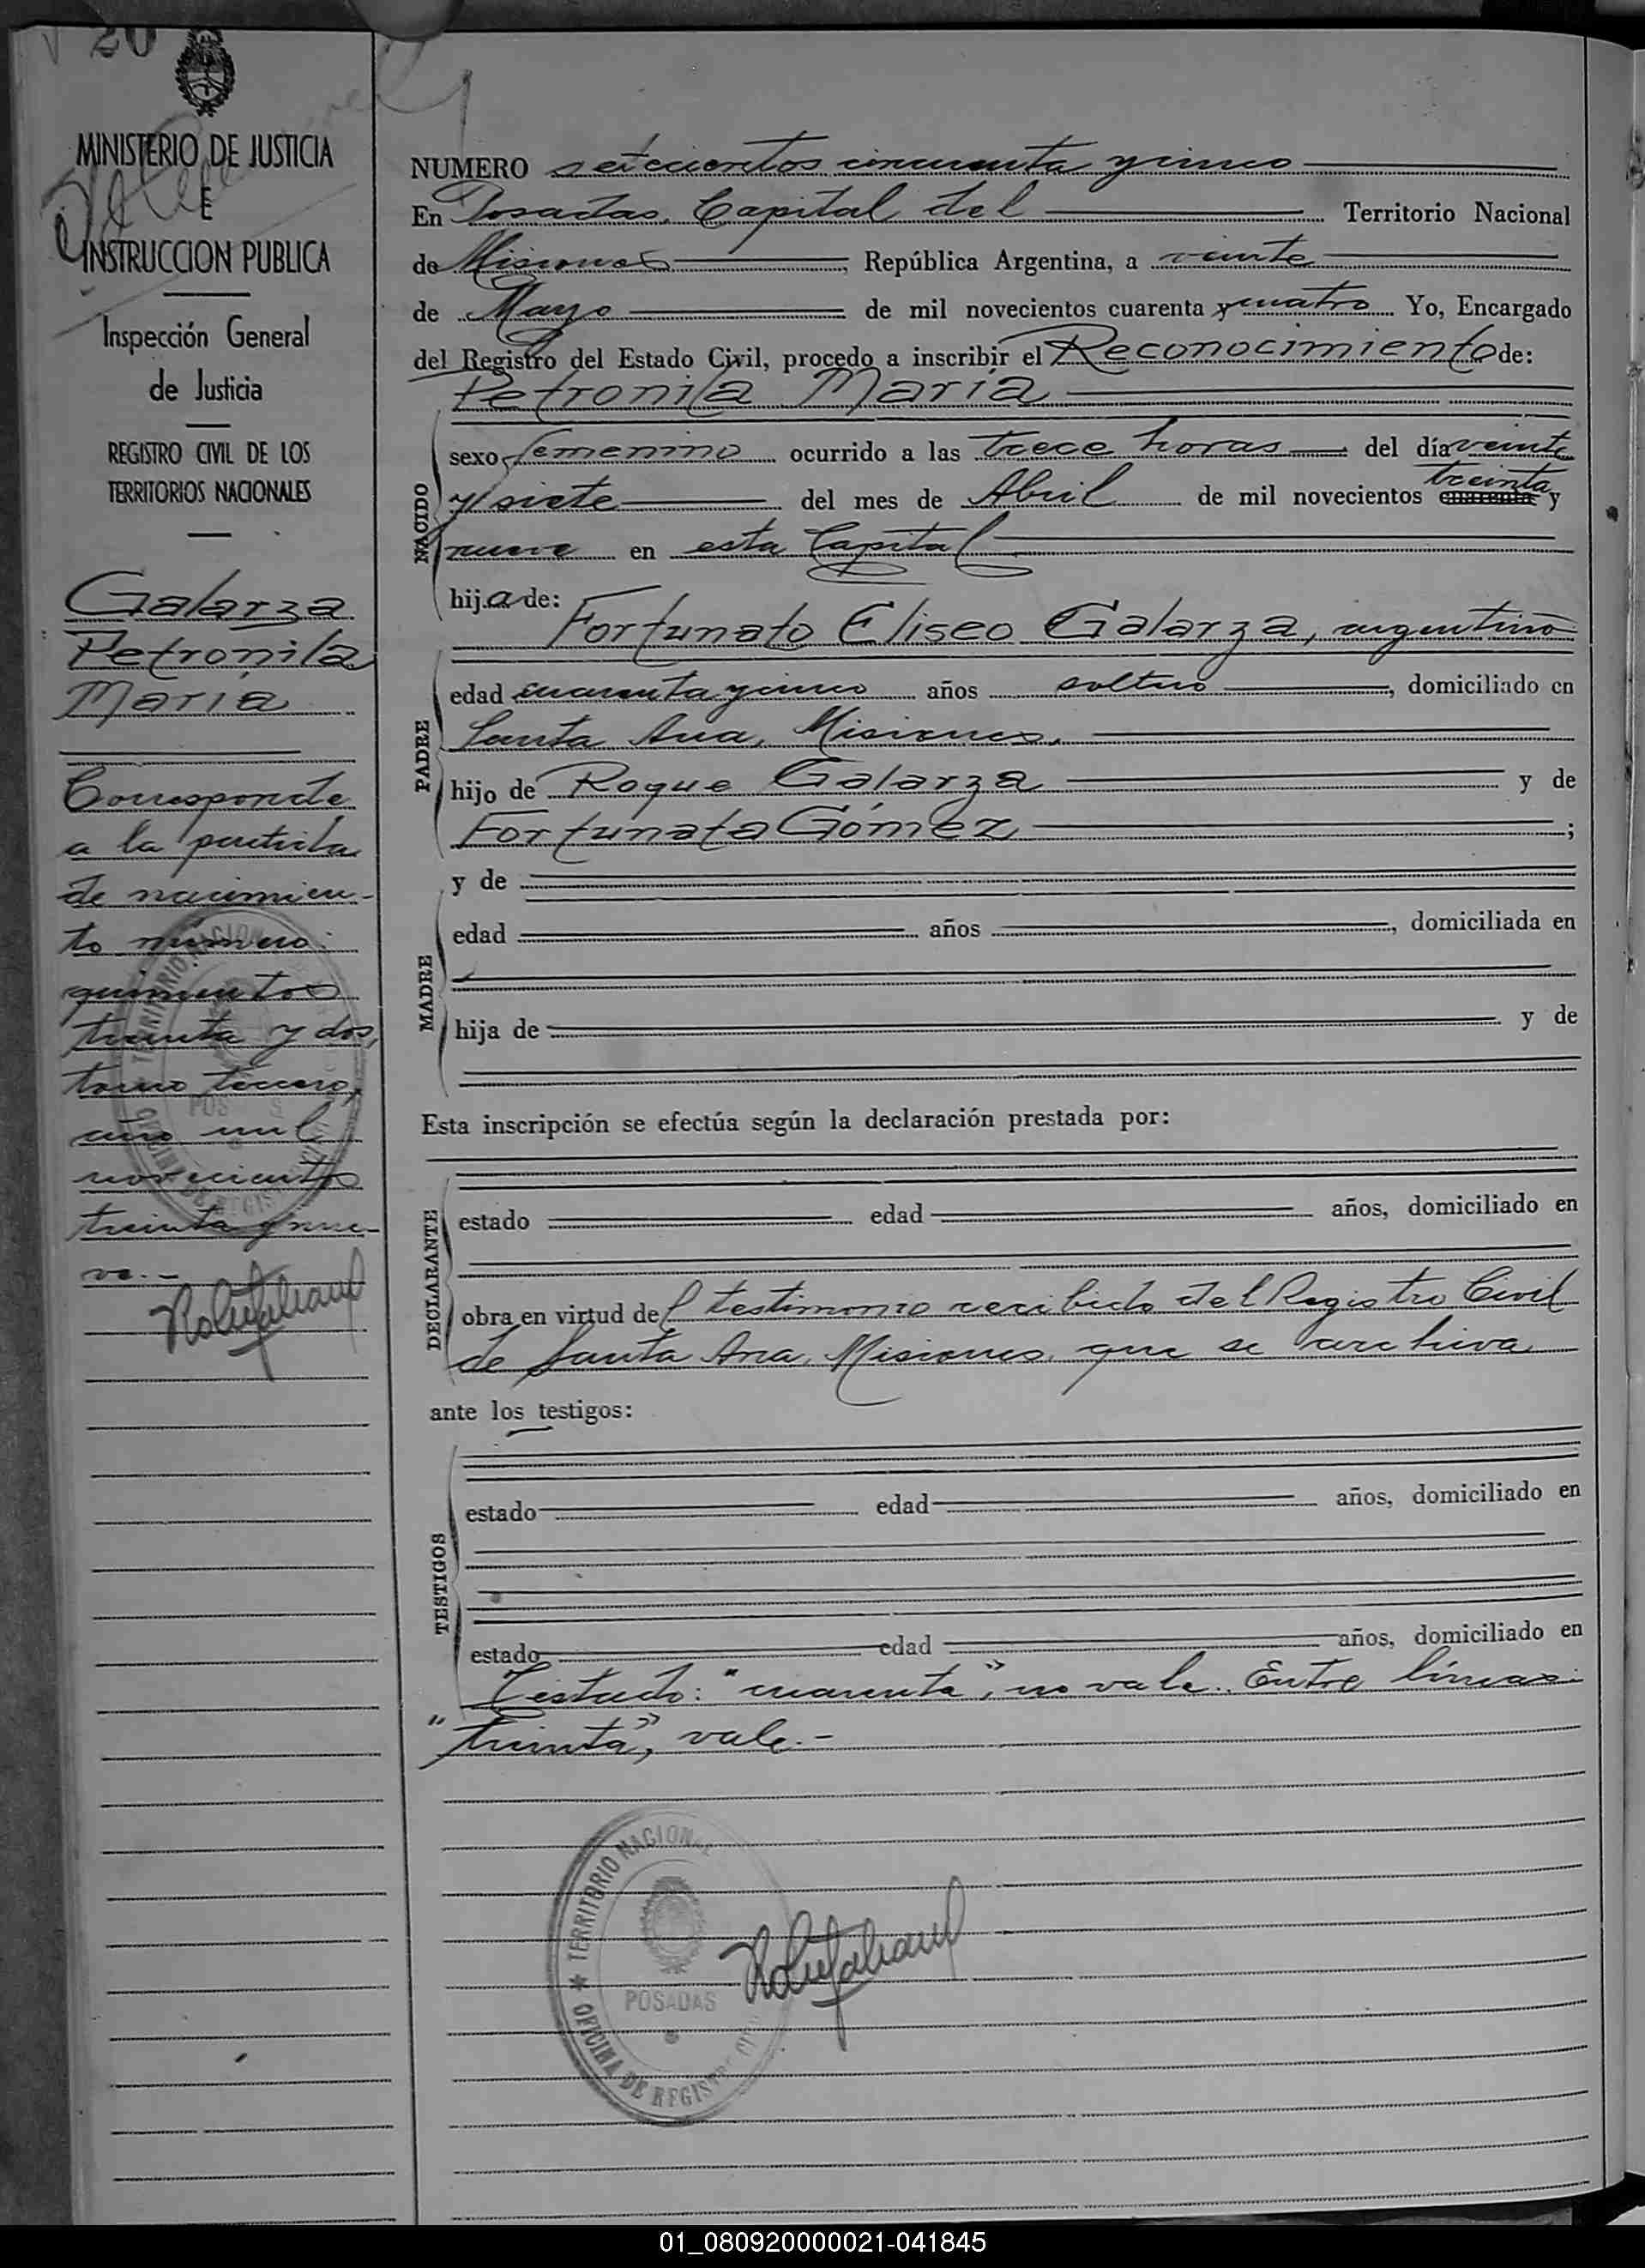 20
MINISTERIO DE JUSTICIA
E
INSTRUCCION PUBLICA
Inspección General
de Justicia
REGISTRO CIVIL DE LOS
TERRITORIOS NACIONALES
Galarza
Petronila
María
Corresponde
a la partida
de nacimien-
to número
quinientos
treinta y dos,
tomo tercero,
año mil
novecientos
treinta y nue-
ve.-
NUMERO setecientos cincuenta y cinco
En Posadas, Capital del Territorio Nacional
de Misiones, República Argentina, a veinte
de Mayo de mil novecientos cuarenta y cuatro Yo, Encargado
del Registro del Estado Civil, procedo a inscribir el Reconocimiento de:
Petronila María
NACIDO
sexo femenino ocurrido a las trece horas del día veinte
treinta
y siete del mes de Abril de mil novecientos cuarenta y
nueve en esta Capital
hija de:
Fortunato Eliseo Galarza, argentino
PADRE
edad cuarenta y cinco años soltero, domiciliado en
Santa Ana, Misiones,
hijo de Roque Galarza y de
Fortunata Gómez;
MADRE
y de
edad años, domiciliada en
hija de y de
Esta inscripción se efectúa según la declaración prestada por:
DECLARANTE
estado edad años, domiciliado en
obra en virtud del testimonio recibido del Registro Civil
de Santa Ana, Misiones, que se archiva
ante los testigos:
TESTIGOS
estado edad años, domiciliado en
estado edad años, domiciliado en
Testado: "cuarenta", no vale. Entre líneas:
"treinta", vale.-
TERRITORIO NACIONAL
POSADAS
OFICINA DE REGISTRO
01_080920000021-041845